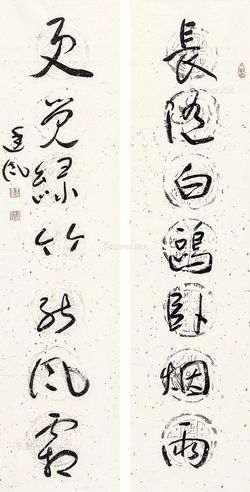 長隨白鷗卧烟雨
更覺綠竹能風霜